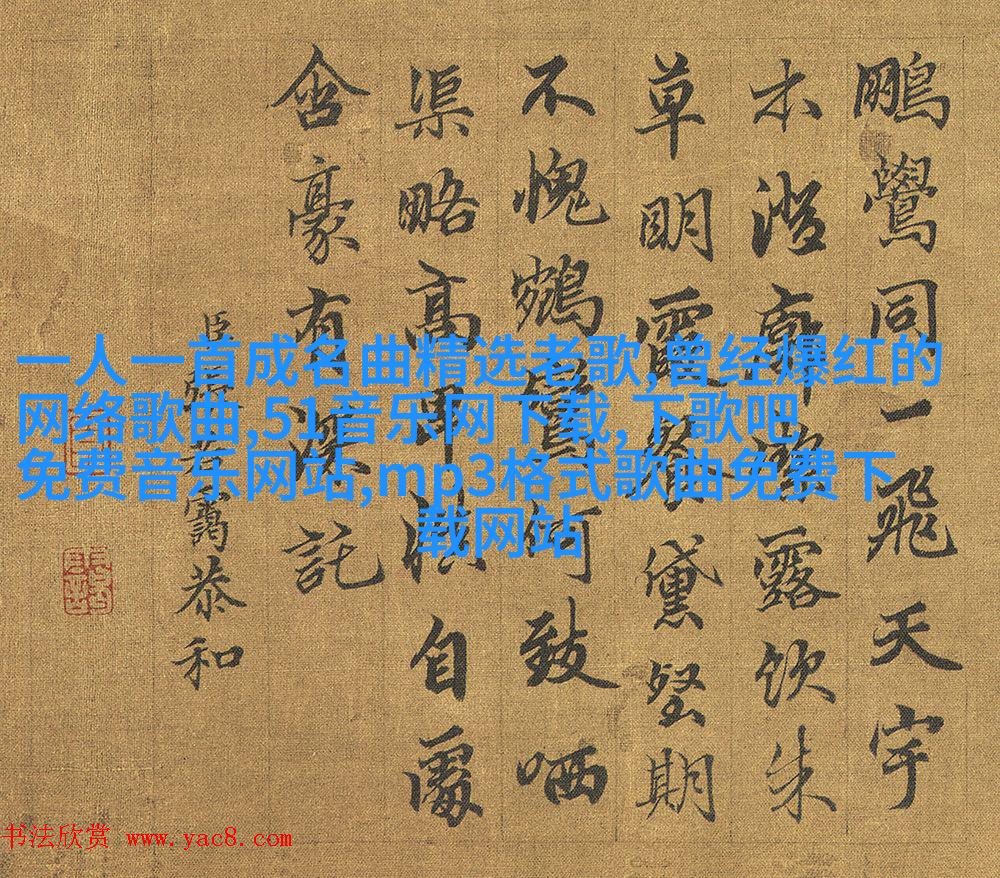 鵬鷽同一飛天宇
澄露飲朱
草明霞餐黛壑期
不愧何致哂
渠略高自處
含豪有深託
臣張若靄恭和
一人一首成名曲精选老歌,曾经爆红的
网络歌曲,51音乐网下载,下歌吧
免费音乐网站,mp3格式歌曲免费下
载网站
书法欣赏 www.yac8.com